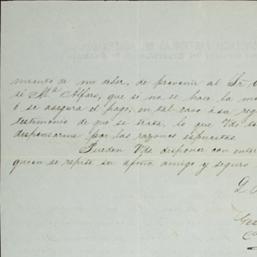 miento de mi deber, de prevenir al Sr
se Ma. Alfaro, que si no se hace la
ó se asegura el pago, en tal caso á su
testimonio de que se trata, lo que Vds
dispensarme por las razones espuestas.
Pueden Vds disponer con
quien se repite su afmo amigo y seguro